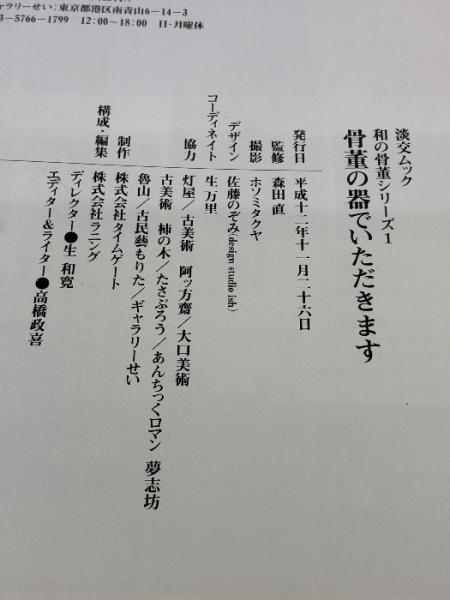 ャラリーせい：東京都港区南青山6－14－3
3－5766－1799　12:00～18:00　日・月曜休
淡交ムック
和の骨董シリーズ1
骨董の器でいただきます
発行日　平成十二年十一月二十六日
監修　森田 直
撮影　ホソミタクヤ
デザイン　佐藤のぞみ(design studio ish)
コーディネイト　生 万里
協力　灯屋／古美術 阿ッ方齋／大口美術
古美術 柿の木／たさぶろう／あんちっくロマン 夢志坊
魯山／古民藝もりた／ギャラリーせい
制作　株式会社タイムゲート
構成・編集　株式会社ラニング
ディレクター●生 和寛
エディター&ライター●高橋政喜